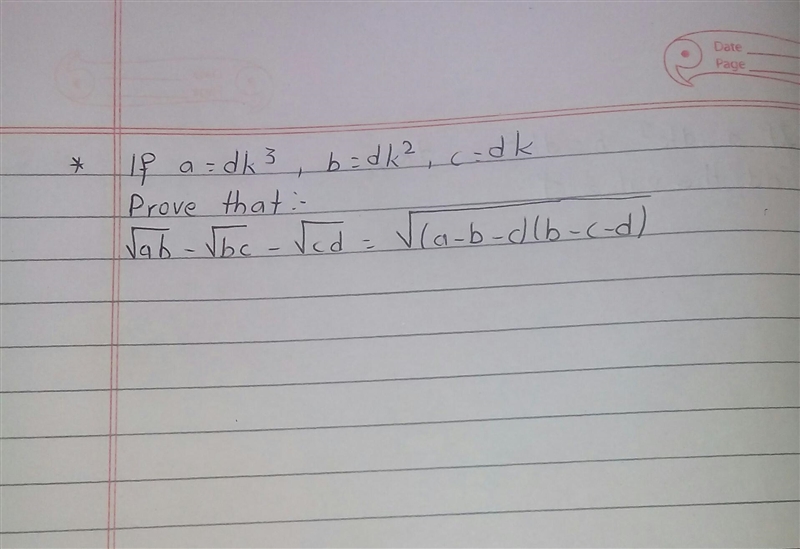 Date
Page
* If a = dk³, b = dk², c = dk
Prove that :-
√ab - √bc - √cd = √(a-b-c)(b-c-d)